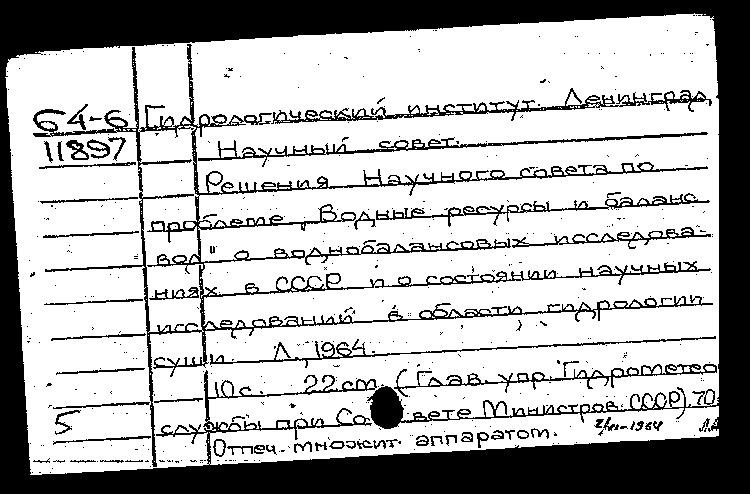 64-6 Гидрологический институт. Ленинград.
11897 Научный совет.
Решения Научного совета по
проблеме „Водные ресурсы и баланс
вод" о воднобалансовых исследова-
ниях в СССР и о состоянии научных
исследований в области гидрологии
суши. Л., 1964.
10 с. 22 см. (Глав. упр. Гидрометео
5 службы при Совете Министров СССР). 70
Отпеч. множит. аппаратом.